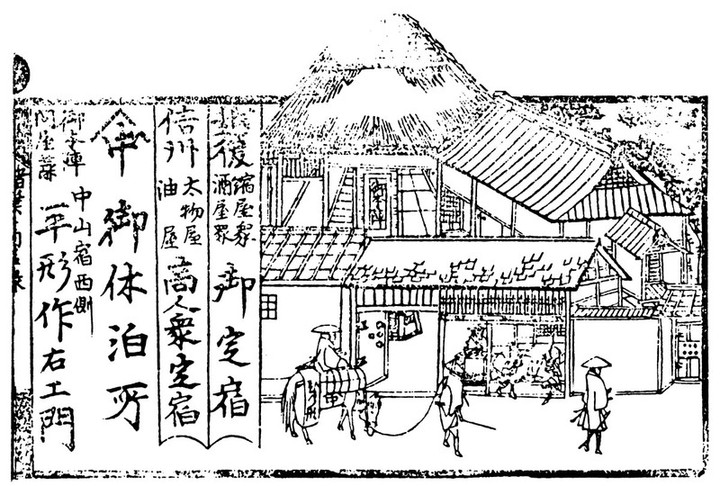 御本陣
越後
縮屋衆
酒屋衆
御定宿
信州
太物屋
油屋
商人衆定宿
中御休泊所
御本陣
問屋兼
中山宿西側
平形作右エ門